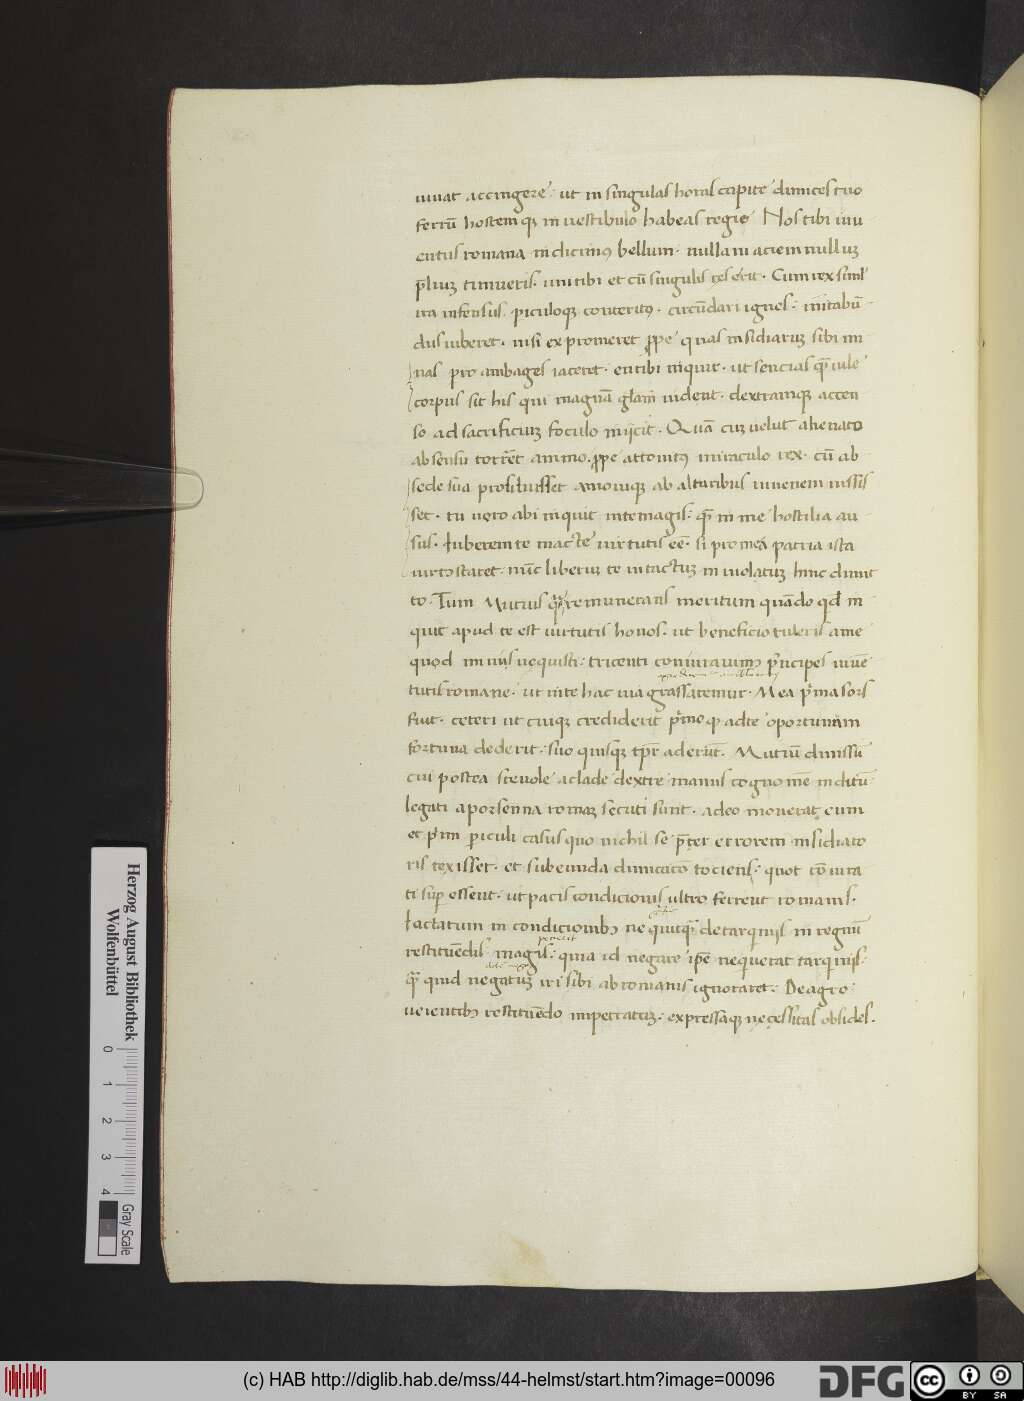 iuuat accingere: ut in singulas horas capite dimices tuo
ferrū hostemqꝫ in uestibulo habeas regie. Hos tibi iuu
entus romana indicimꝰ bellum. nullam aciem nulluꝫ
p̄liuꝫ timueris. uni tibi et cū singulis res erit. Cum rex siml̄
ira infensus. piculoqꝫ conteritꝰ. circūdari ignes: minitabū
dus iuberet. nisi expromeret ꝓpe quas insidiaruꝫ sibi mi
nas pro ambages iaceret. en tibi inquit. ut sencias q̄ uile
corpus sit his qui magnā gl̄am uident. dextramqꝫ accen
so ad sacrificiuꝫ foculo iniicit. Quā cuꝫ velut alienato
ab sensu torrēt animo. ꝓpe attonitꝰ miraculo rex. cū ab
sede sua prosiluisset amouiqꝫ ab altaribus iuuenem iussis
set. tu uero abi inquit in te magis: q̄ in me hostilia au
sus. Iuberem te macte uirtutis eē. si pro mea patria ista
uirtꝰ staret. nūc liberuꝫ te intactuꝫ inuiolatuꝫ hinc dimit
to. Tum Mutius q̄si remunerans meritum quādo qd̄ in
quit apud te est uirtutis honos. ut beneficio tuleris a me
quod minis nequisti: tricenti coniurauimꝰ p̄ncipes iuuē
tutis romane. ut in te hac uia grassaremur. Mea p̄ma sors
fuit. ceteri ut cuiqꝫ crediderit p̄mo qꝫ ad te oportunum
fortuna dederit: suo quisqꝫ tp̄r aderūt. Mutiū dimissū
cui postea sceuole a clade dextre manus cognomē inditū
legati a porsenna romaꝫ secuti sunt. adeo mouerat eum
et p̄mi periculi casus quo nichil se p̄ter errorem insidiato
ris texisset. et subeunda dimicatō tociens: quot cōiura
ti suꝑ essent. ut pacis condicionis ultro ferret romanis.
Iactatum in condicionibꝰ ne quiqꝫ de tarquiniis in regnū
restituēdis. magis: quia id negare ip̄e nequerat tarquiniis.
q̄ quid negatuꝫ iri sibi ab romanis ignoraret. De agro
ueientibꝰ restituēdo impetratuꝫ: expressaqꝫ necessitas obsides.
Herzog August Bibliothek
Wolfenbüttel
0 1 2 3 4
Gray Scale
(c) HAB http://diglib.hab.de/mss/44-helmst/start.htm?image=00096
DFG
cc BY SA